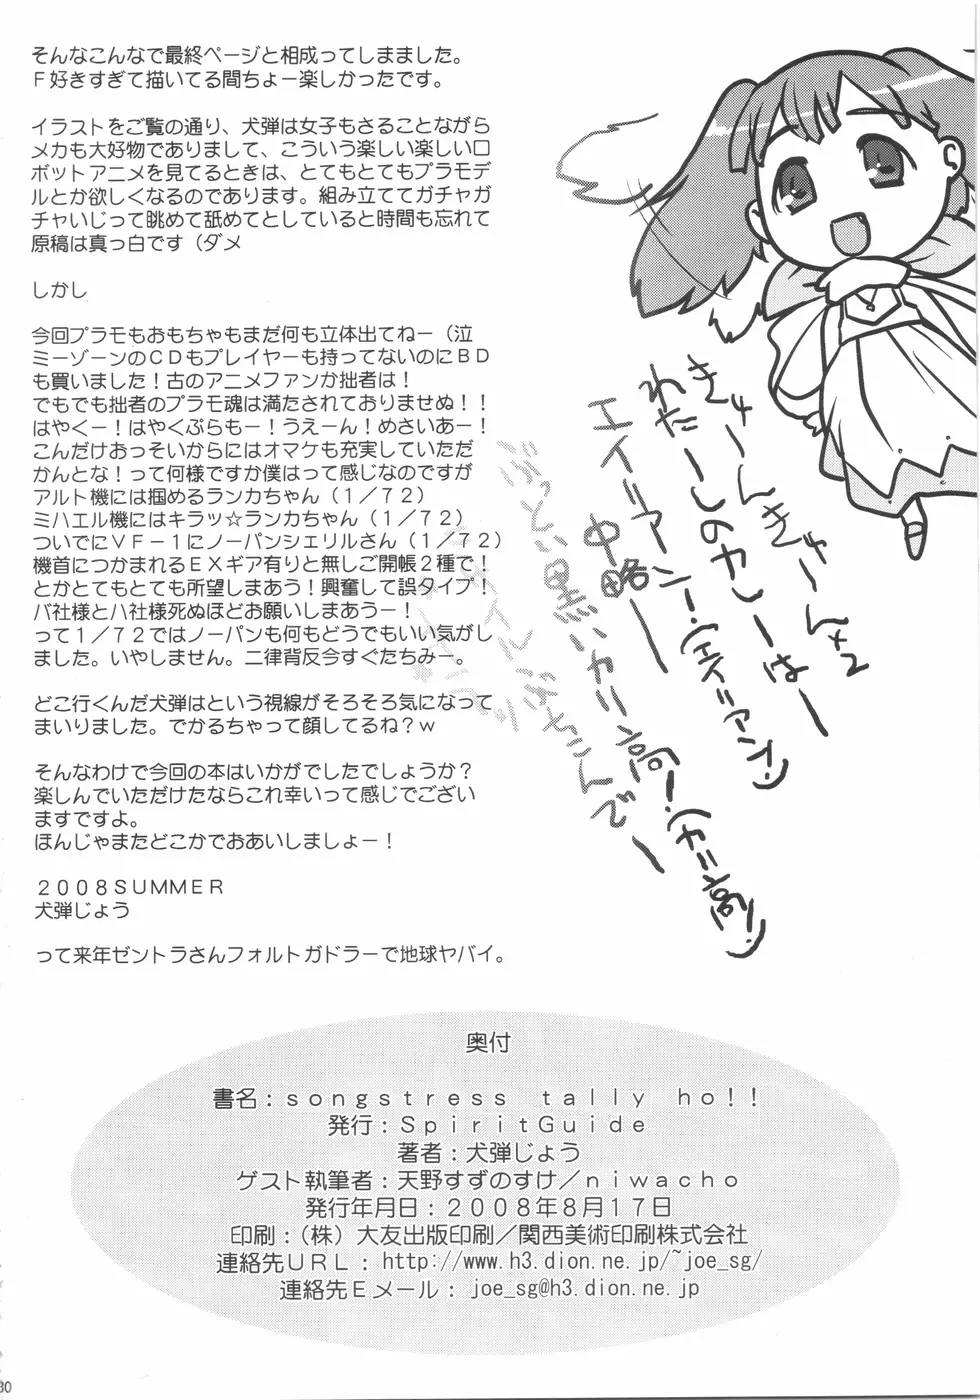 そんなこんなで最終ページと相成ってしまました。
Ｆ好きすぎて描いてる間ちょー楽しかったです。
イラストをご覧の通り、犬弾は女子もさることながら
メカも大好物でありまして、こういう楽しい楽しいロ
ボットアニメを見てるときは、とてもとてもプラモデ
ルとか欲しくなるのであります。組み立ててガチャガ
チャいじって眺めて舐めてとしていると時間も忘れて
原稿は真っ白です（ダメ
しかし
今回プラモもおもちゃもまだ何も立体出てねー（泣
ミーゾーンのＣＤもプレイヤーも持ってないのにＢＤ
も買いました！古のアニメファンか拙者は！
でもでも拙者のプラモ魂は満たされておりませぬ！！
はやくー！はやくぷらもー！うえーん！めさいあー！
こんだけおっそいからにはオマケも充実していただ
かんとな！って何様ですか僕はって感じなのですが
アルト機には掴めるランカちゃん（１／７２）
ミハエル機にはキラッ☆ランカちゃん（１／７２）
ついでにＶＦ－１にノーパンシェリルさん（１／７２）
機首につかまれるＥＸギア有りと無しご開帳２種で！
とかとてもとても所望しまあう！興奮して誤タイプ！
バ社様とハ社様死ぬほどお願いしまあうー！
って１／７２ではノーパンも何もどうでもいい気がし
ました。いやしません。二律背反今すぐたちみー。
どこ行くんだ犬弾はという視線がそろそろ気になって
まいりました。でかるちゃって顔してるね？ｗ
そんなわけで今回の本はいかがでしたでしょうか？
楽しんでいただけたならこれ幸いって感じでござい
ますですよ。
ほんじゃまたどこかでおあいしましょー！
２００８ＳＵＭＭＥＲ
犬弾じょう
って来年ゼントラさんフォルトガドラーで地球ヤバイ。
きゅーんきゅーん×2
わたーしのカレーはー
エイリアン！（エイリアン）
中略ー
ぶっとい黒いカリ高！（カリ高）
奥付
書名：ｓｏｎｇｓｔｒｅｓｓ　ｔａｌｌｙ　ｈｏ！！
発行：ＳｐｉｒｉｔＧｕｉｄｅ
著者：犬弾じょう
ゲスト執筆者：天野すずのすけ／ｎｉｗａｃｈｏ
発行年月日：２００８年８月１７日
印刷：（株）大友出版印刷／関西美術印刷株式会社
連絡先ＵＲＬ：http://www.h3.dion.ne.jp/~joe_sg/
連絡先Ｅメール：joe_sg@h3.dion.ne.jp
30